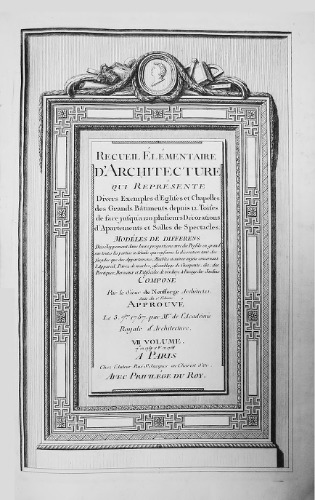 RECUEIL ÉLÉMENTAIRE
D'ARCHITECTURE
QUI REPRESENTE
Divers Exemples d'Eglises et Chapelles
des Grands Bâtiments depuis 12 Toises
de face jusqu'à 20 plusieurs Décorations
d'Apartements et Salles de Spectacles.
MODÈLES DE DIFFERENS
COMPOSÉ
Par le Sieur de Neufforge Architecte
APPROUVÉ
Le 5. 7.bre 1757. par M.rs de l'Académie
Royale d'Architecture.
VII VOLUME.
A PARIS
Chez l'Auteur Rue S.t Jacques au Chariot d'or.
AVEC PRIVILEGE DU ROY.